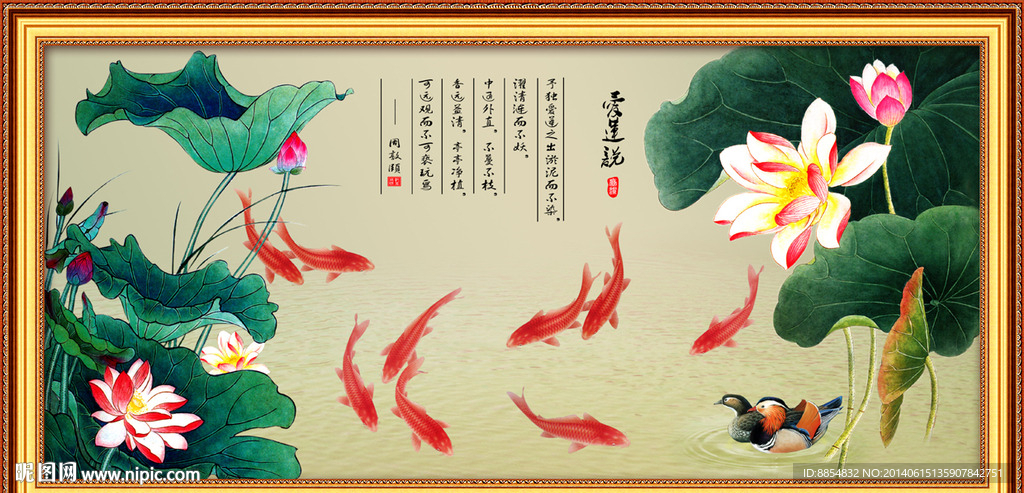 愛蓮說
予独爱莲之出淤泥而不染。
濯清涟而不妖。
中通外直。不蔓不枝。
香远益清。亭亭净植。
可远观而不可亵玩焉
——周敦颐
昵图网 www.nipic.com
ID:8854832 NO:20140615135907842751